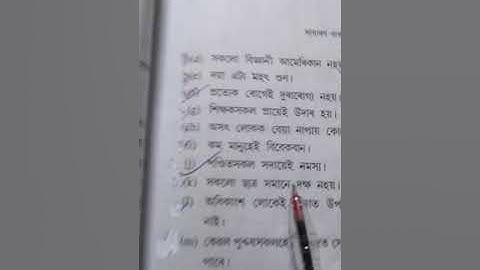 সাধাৰণ
(d) সকলো বিজ্ঞানী আমেৰিকান নহয়
(e) দয়া এটা মহৎ গুণ।
(f) প্ৰত্যেক ৰোগেই দুৰাৰোগ্য নহয়।
(g) শিক্ষকসকল প্ৰায়েই উদাৰ হয়।
(h) অসৎ লোকক বেয়া নাপায়
(i) কম মানুহেই বিবেকবান।
(j) পণ্ডিতসকল সদায়েই নমস্য।
(k) সকলো ছাত্ৰ সমানে দক্ষ নহয়।
(l) অধিকাংশ লোকেই
নাই।
(m) কেৱল পুৰুষসকলহে
পাৰে।